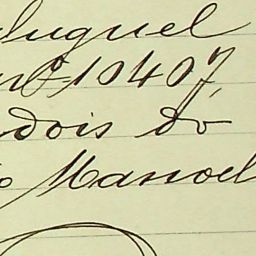 aluguel
nº 10407,
dois do
Manoel